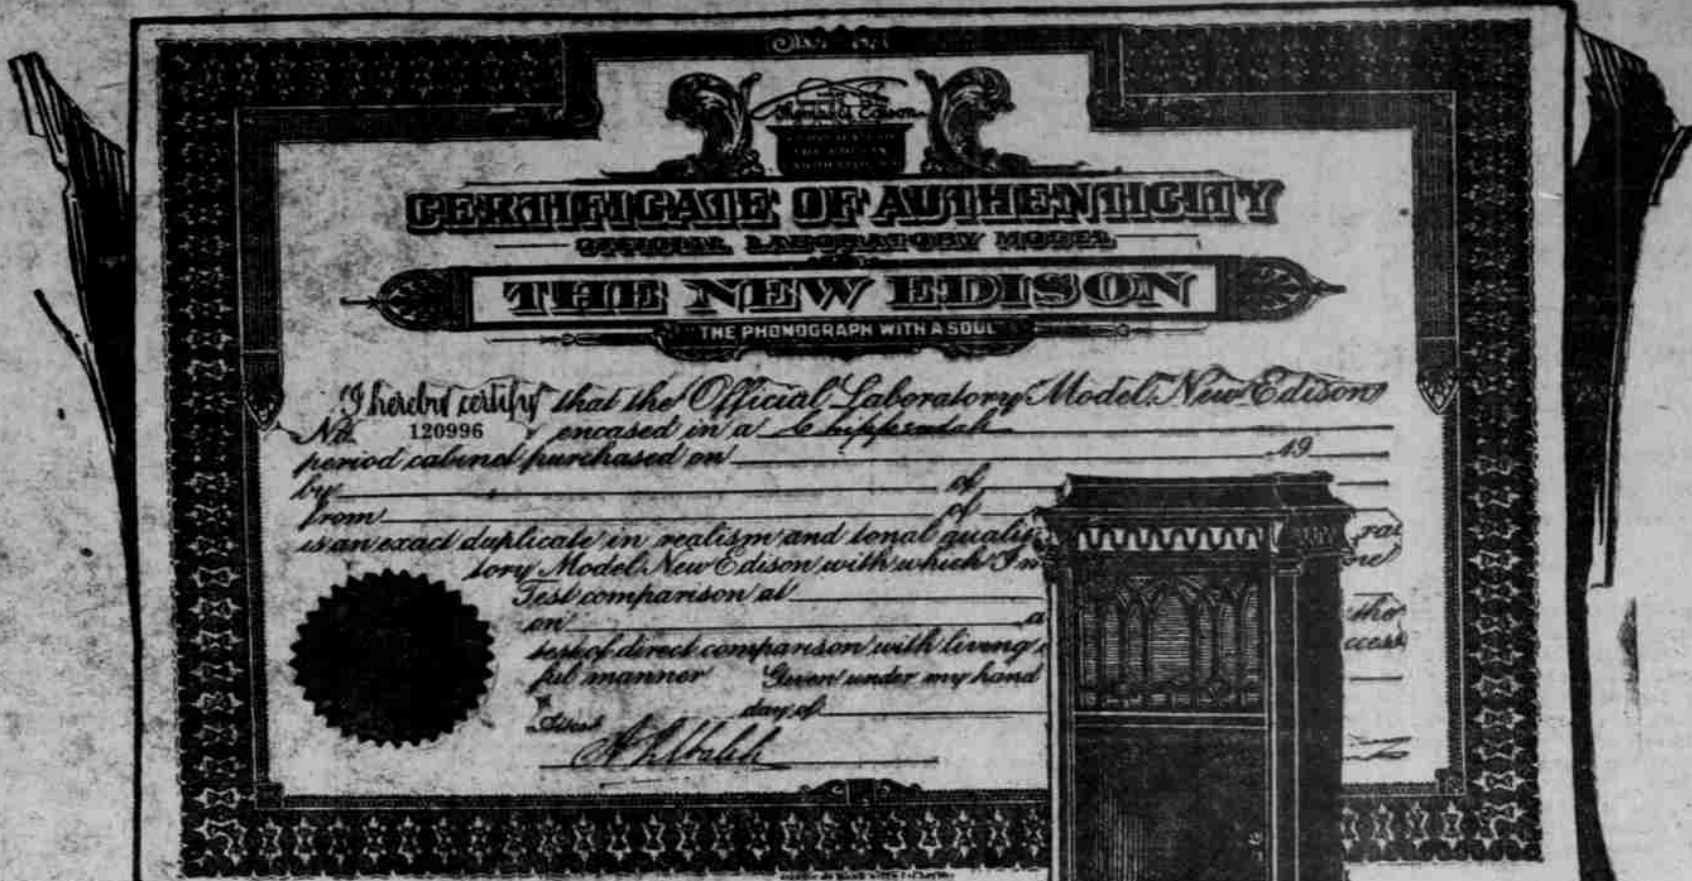 Thomas A Edison
CERTIFICATE OF AUTHENTICITY
OFFICIAL LABORATORY MODEL
THE NEW EDISON
"THE PHONOGRAPH WITH A SOUL"
I hereby certify that the Official Laboratory Model New Edison
No. 120996 encased in a Chippendale
period cabinet purchased on 19
by of
from of
is an exact duplicate in realism and tonal quali
tory Model New Edison with which I
Test comparison at
on a the
test of direct comparison with living cess
ful manner Given under my hand
day of
Attest